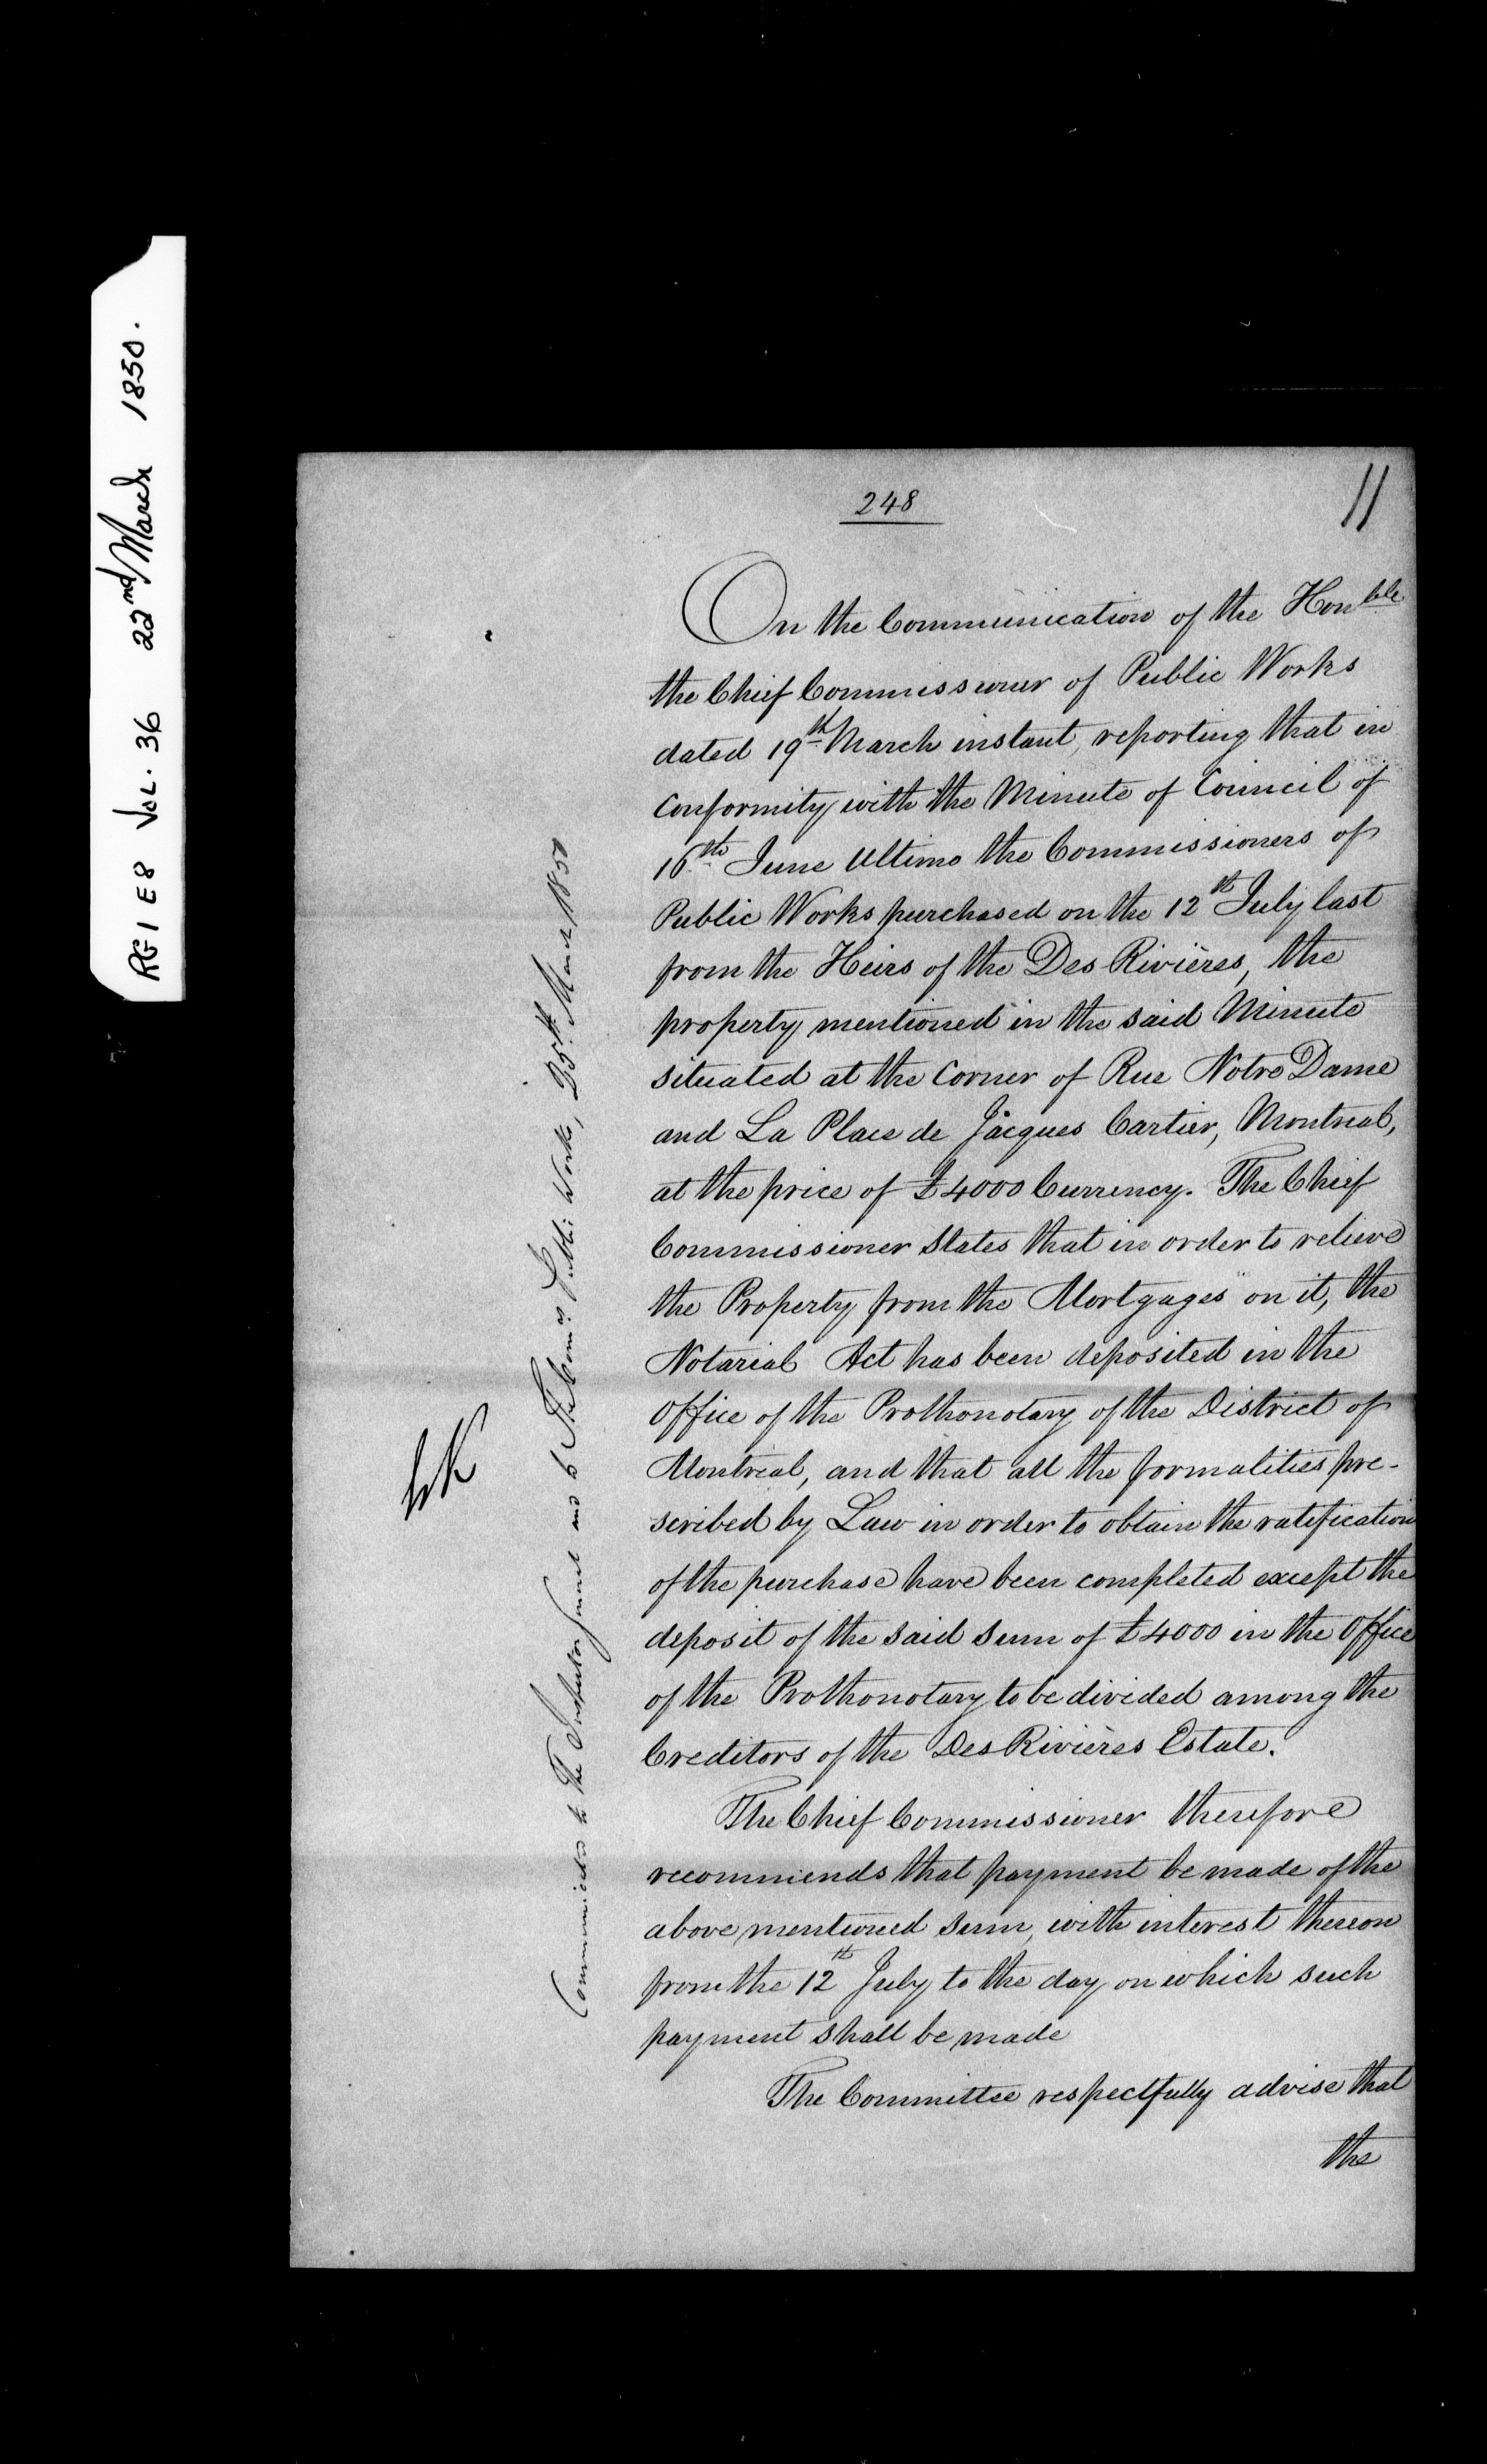 RG 1 E8 Vol. 36 22nd March 1850.
248
11
On the Communication of the Honble
the Chief Commissioner of Public Works
dated 19th March instant, reporting that in
conformity with the Minute of Council of
16th June Ultimo the Commissioners of
Public Works purchased on the 12th July last
from the Heirs of the Des Rivières, the
property mentioned in the said Minute
situated at the Corner of Rue Notre Dame
and La Place de Jacques Cartier, Montreal,
at the price of £4000 Currency. The Chief
Commissioner States that in order to relieve
the Property from the Mortgages on it, the
Notarial Act has been deposited in the
Office of the Prothonotary of the District of
Montreal, and that all the formalities pre-
scribed by Law in order to obtain the ratification
of the purchase have been completed except the
deposit of the said Sum of £4000 in the Office
of the Prothonotary to be divided among the
Creditors of the Des Rivières Estate.
The Chief Commissioner therefore
recommends that payment be made of the
above mentioned Sum, with interest thereon
from the 12th July to the day on which such
payment shall be made
The Committee respectfully advise that
the
Communicated to The Inspector General and to The Comrs Public Works, 25th March 1850